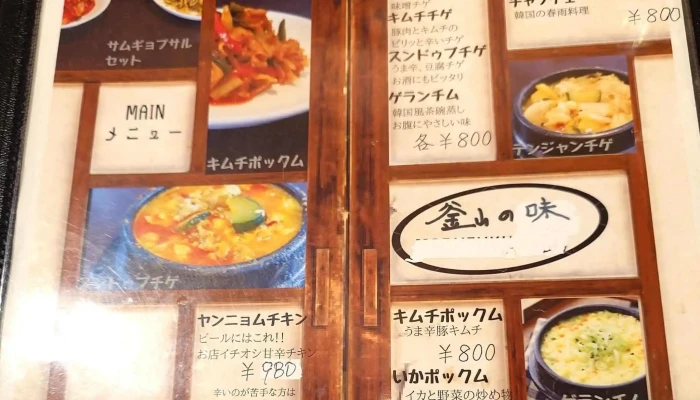 サムギョプサル
セット
MAIN
メニュー
キムチポックム
ヤンニョムチキン
ビールにはこれ!!
お店イチオシ甘辛チキン
¥980
辛いのが苦手な方は
味噌チゲ
キムチチゲ
豚肉とキムチの
ピリッと辛いチゲ
スンドゥブチゲ
うま辛、豆腐チゲ
お酒にもピッタリ
ケランチム
韓国風茶碗蒸し
お腹にやさしい味
各¥800
韓国の春雨料理
¥800
テンジャンチゲ
釜山の味
キムチポックム
うま辛豚キムチ
¥800
いかポックム
イカと野菜の炒め物
ケランチム